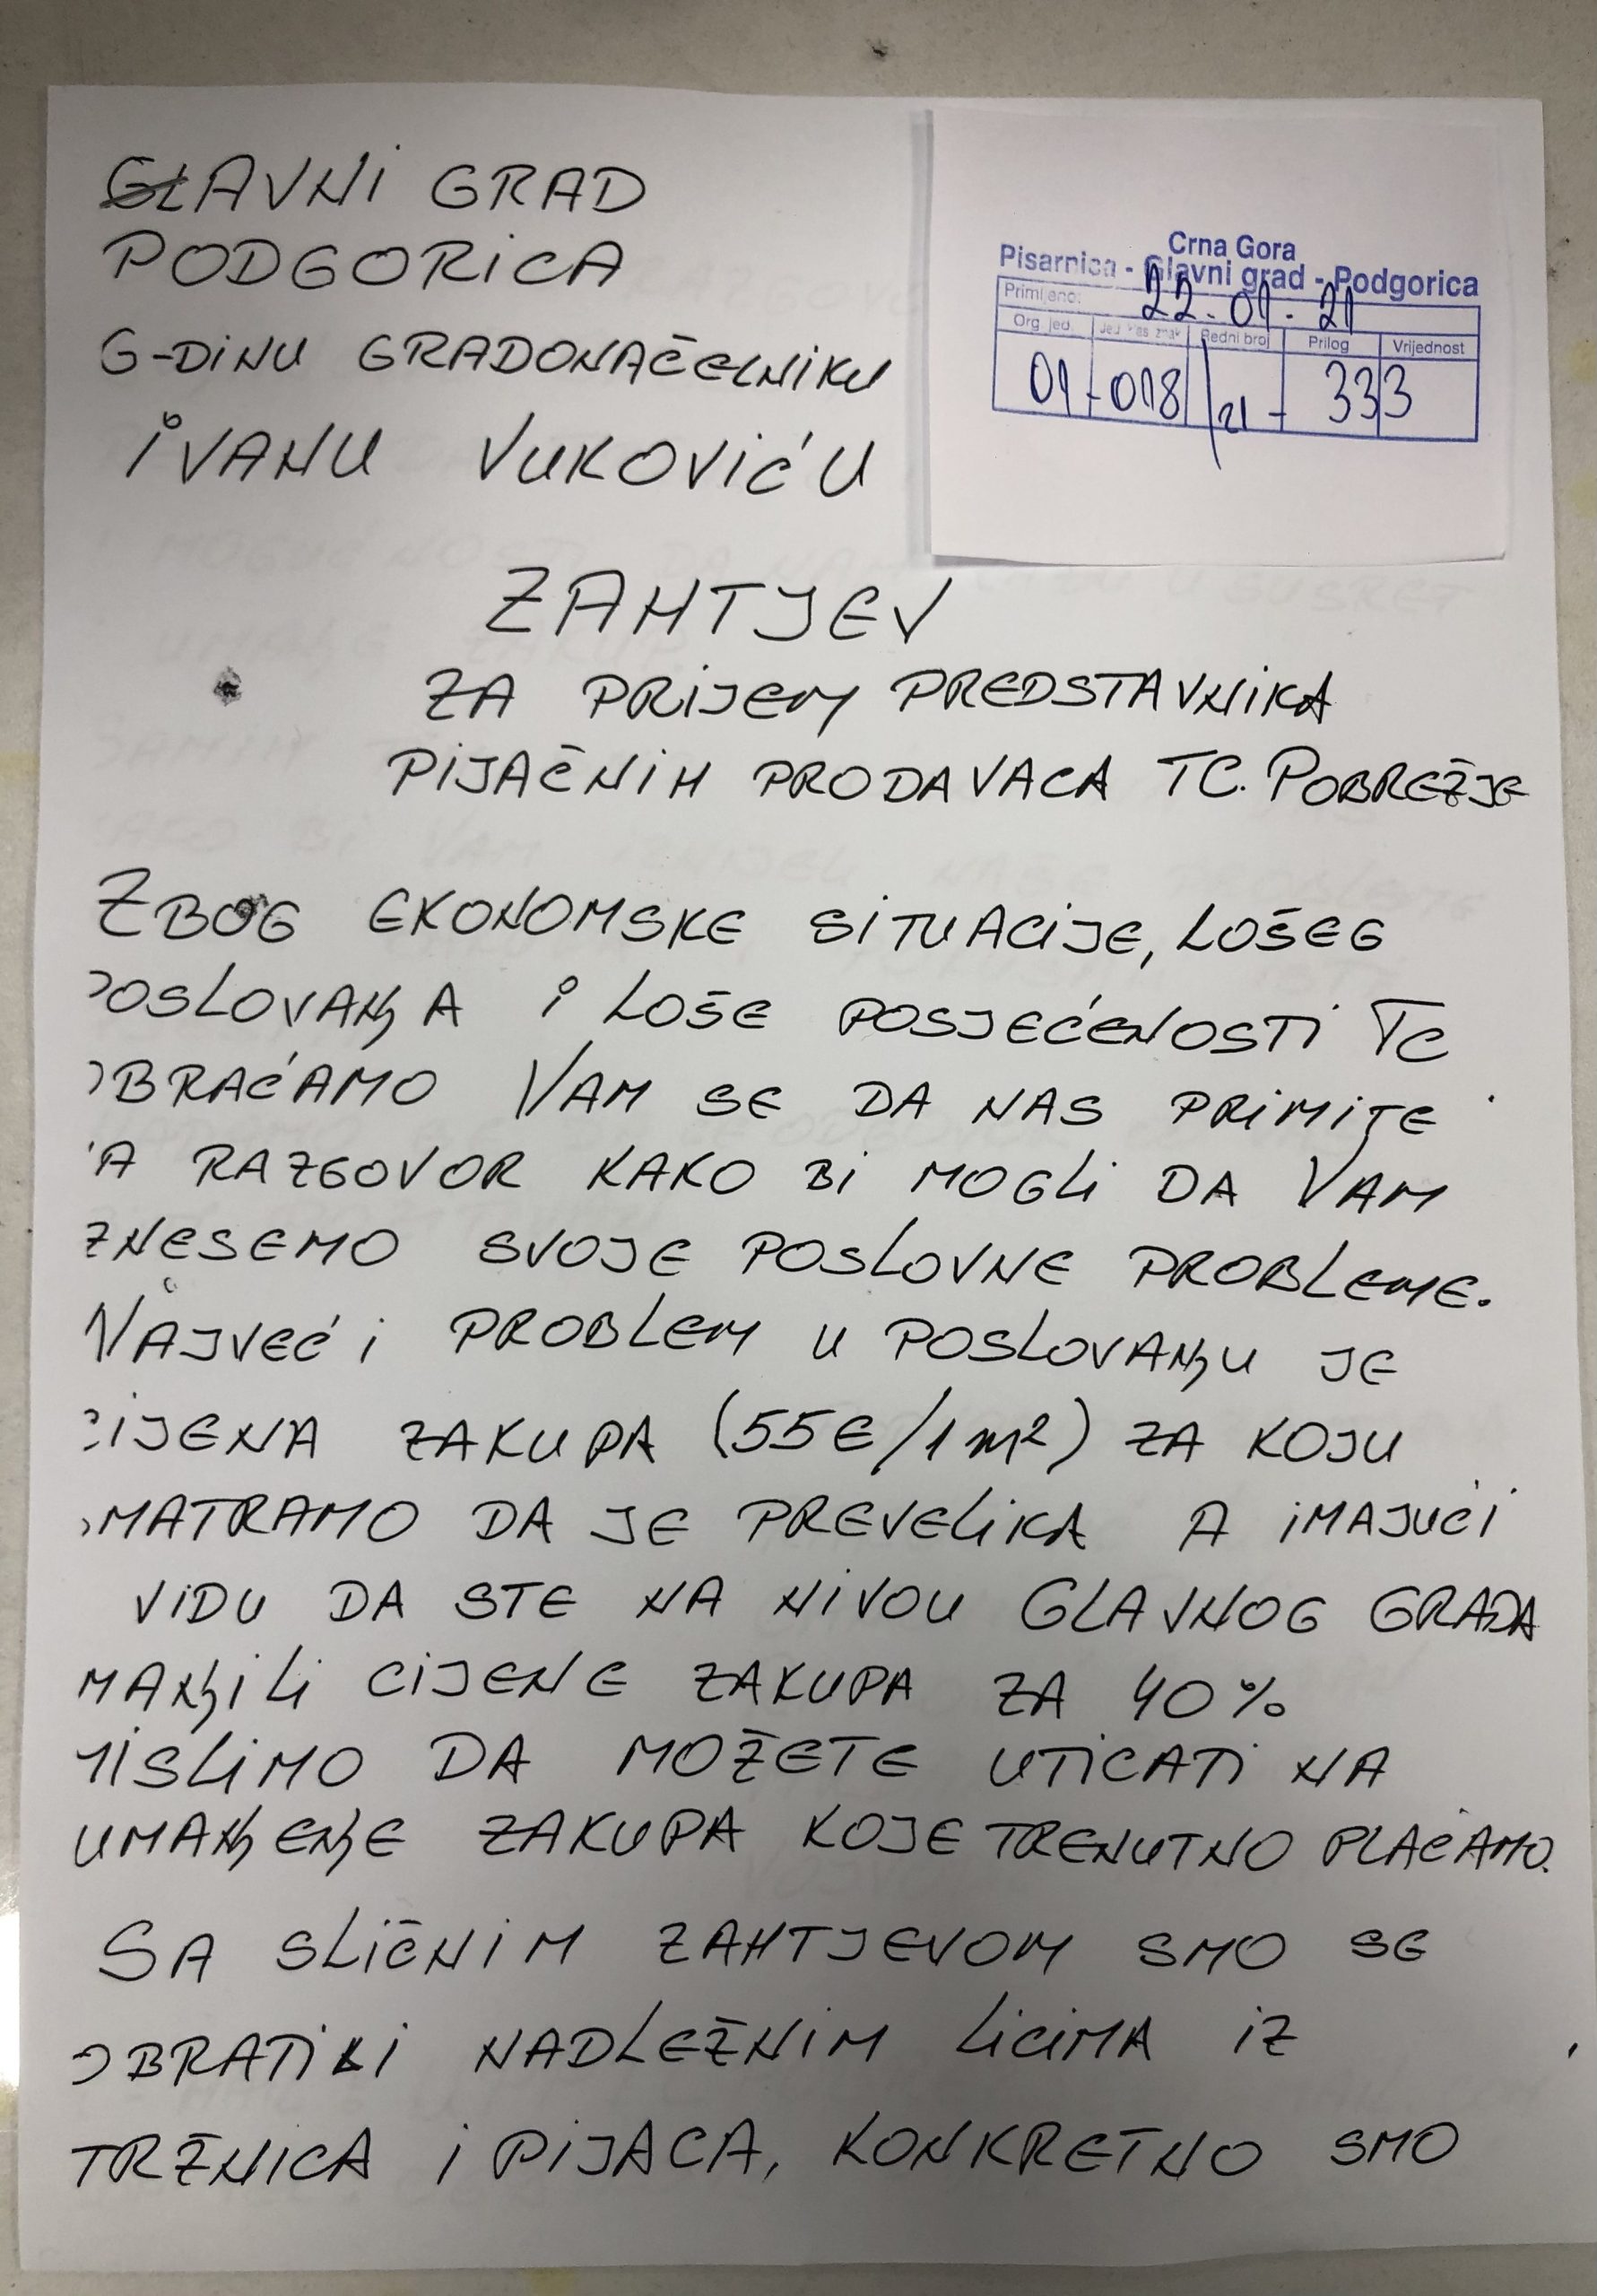 GLAVNI GRAD
PODGORICA
G-DINU GRADONAČELNIKU
IVANU VUKOVIĆU
Crna Gora
Pisarnica - Glavni grad - Podgorica
Primljeno: 22.01.21
Org. jed. Jed. klas. znak Redni broj Prilog Vrijednost
01-018/21-333
ZAHTJEV
ZA PRIJEM PREDSTAVNIKA
PIJAČNIH PRODAVACA TC. POBREŽJE
ZBOG EKONOMSKE SITUACIJE, LOŠEG
POSLOVANJA I LOŠE POSJEĆENOSTI TC
OBRAĆAMO VAM SE DA NAS PRIMITE
NA RAZGOVOR KAKO BI MOGLI DA VAM
IZNESEMO SVOJE POSLOVNE PROBLEME.
NAJVEĆI PROBLEM U POSLOVANJU JE
CIJENA ZAKUPA (55€/1m²) ZA KOJU
SMATRAMO DA JE PREVELIKA A IMAJUĆI
VIDU DA STE NA NIVOU GLAVNOG GRADA
MANJILI CIJENE ZAKUPA ZA 40%
MISLIMO DA MOŽETE UTICATI NA
UMANJENJE ZAKUPA KOJE TRENUTNO PLAĆAMO.
SA SLIČNIM ZAHTJEVOM SMO SE
OBRATILI NADLEŽNIM LICIMA IZ
TRŽNICA I PIJACA, KONKRETNO SMO